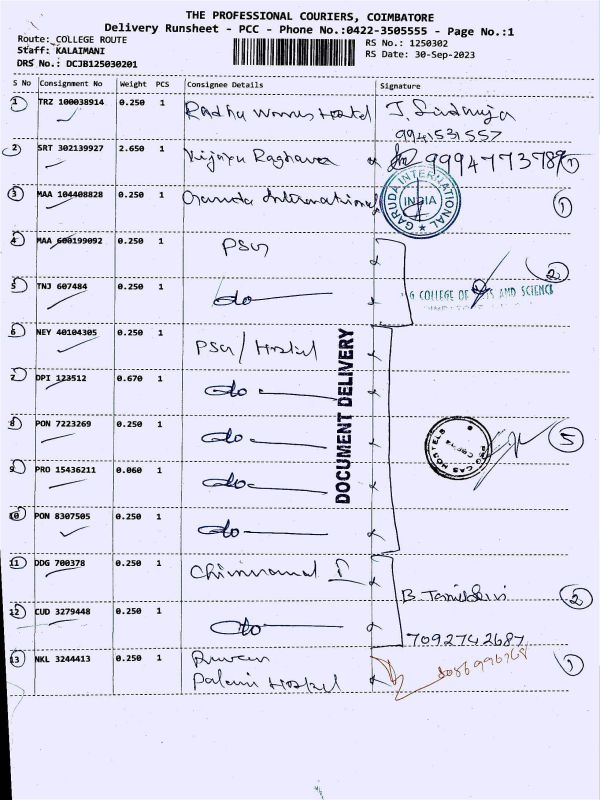 THE PROFESSIONAL COURIERS, COIMBATORE
Delivery Runsheet - PCC - Phone No.:0422-3505555 - Page No.:1
Route: COLLEGE ROUTE
Staff: KALAIMANI
DRS No.: DCJB125030201
RS No.: 1250302
RS Date: 30-Sep-2023
S No Consignment No Weight PCS Consignee Details Signature
1 TRZ 100038914 0.250 1
9941531557
2 SRT 302139927 2.650 1 Vijaya Raghava 1
3 MAA 104408828 0.250 1 Garuda International 1
GARUDA INTERNATIONAL
INDIA
4 MAA 600199092 0.250 1 PSG 2
5 TNJ 607484 0.250 1 do
G COLLEGE OF ARTS AND SCIENCE
6 NEY 40104305 0.250 1 PSG / Hostel
7 DPI 123512 0.670 1 do
DOCUMENT DELIVERY
8 PON 7223269 0.250 1 do 5
PSG CAS HOSTELS
9 PRO 15436211 0.060 1 do
10 PON 8307505 0.250 1 do
11 DDG 700378 0.250 1
B. 2
12 CUD 3279448 0.250 1 do
7092742687
13 NKL 3244413 0.250 1 1
Palani Hostel